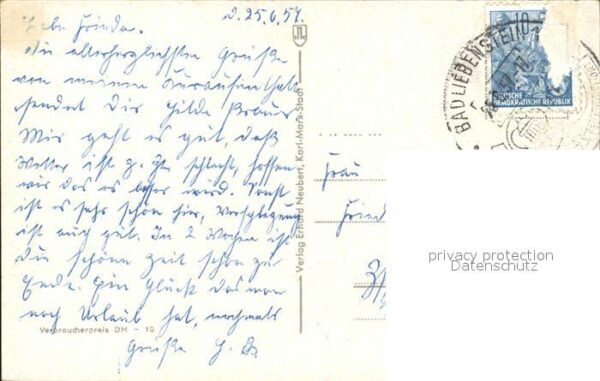 d. 25.6.57.
Liebe Frieda.
Die allerherzlichsten Grüße
von meinen Kuraufenthalt
sendet dir Hilde Kraus
Mir geht es gut, daß
Wetter ist z. Zt. schlecht, hoffen
wir das es besser wird. Sonst
ist es sehr schön hier, Verpflegung
ist auch gut. In 2 Wochen ist
die schöne Zeit schon zu
Ende. Ein Glück das man
noch Urlaub hat, nochmals
Grüße H.
Verbraucherpreis DM - 10
Verlag Erhard Neubert, Karl-Marx-Stadt
Frau
Fried
BAD LIEBENSTEIN
DEUTSCHE
DEMOKRATISCHE REPUBLIK
privacy protection
Datenschutz